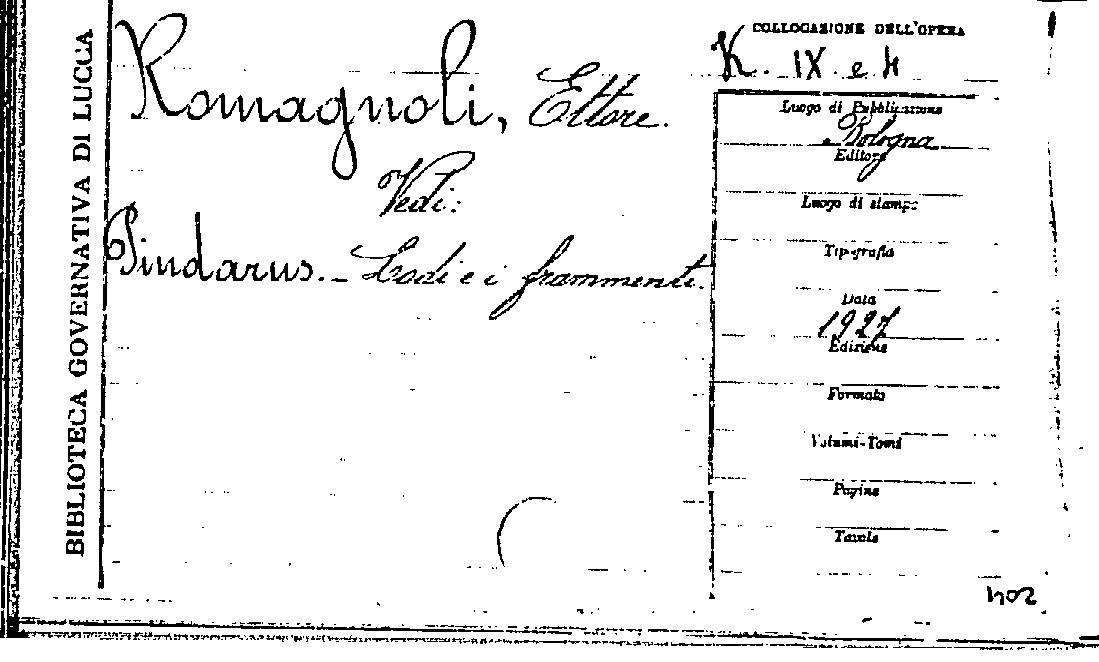 BIBLIOTECA GOVERNATIVA DI LUCCA
Romagnoli, Ettore.
Vedi:
Pindarus. - Le odi e i frammenti.
COLLOCAZIONE DELL'OPERA
K. IX. e 4
Luogo di Pubblicazione
Bologna
Editore
Luogo di stampa
Tipografia
Data
1927
Edizione
Formato
Volumi-Tomi
Pagine
Tavole
402